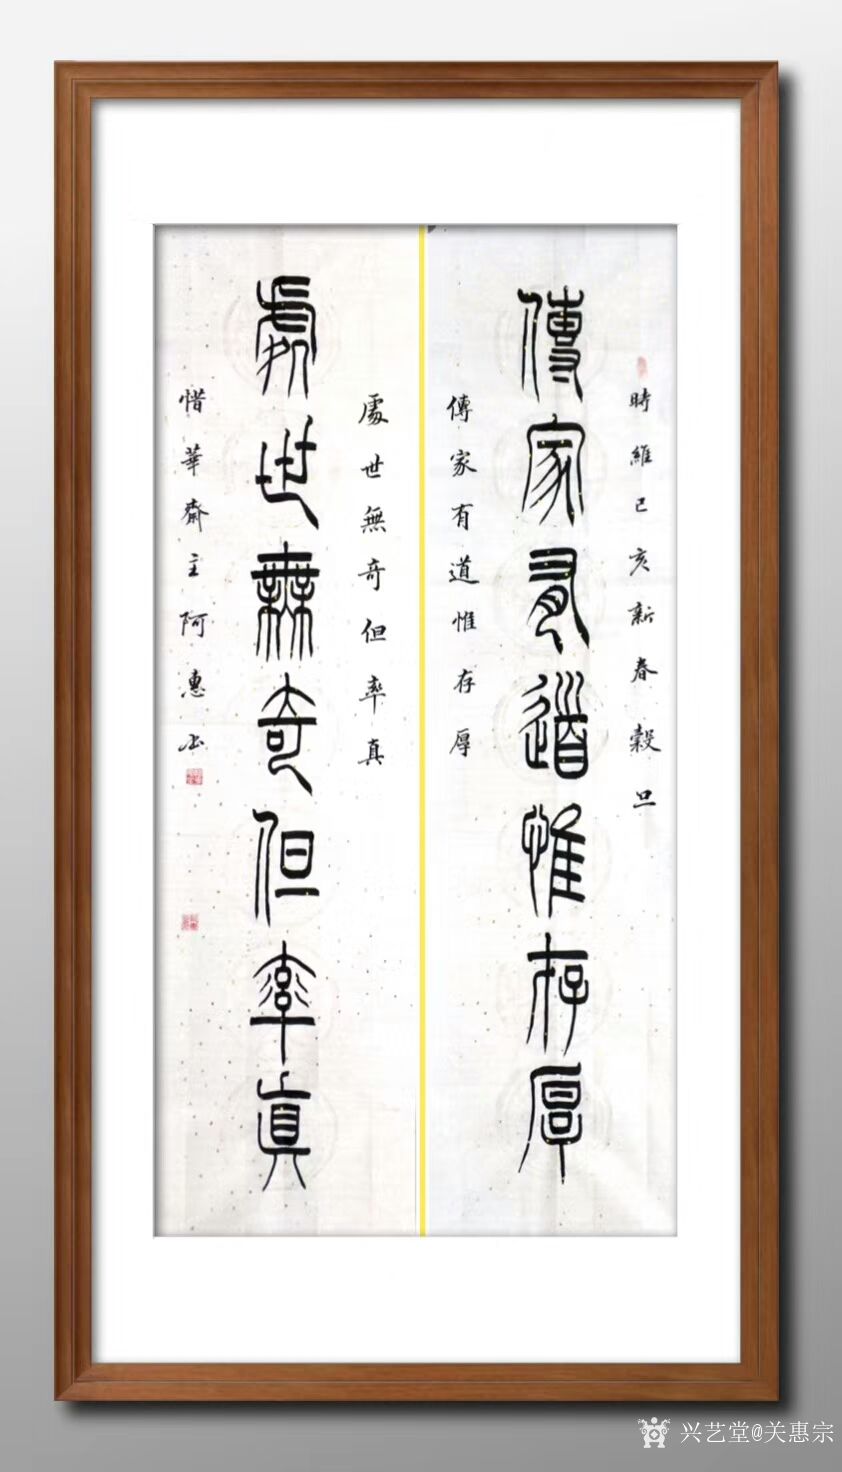 時維己亥新春穀旦
傳家有道惟存厚
傳家有道惟存厚
處世無奇但率真
處世無奇但率真
惜華齋主阿惠书
兴艺堂@关惠宗